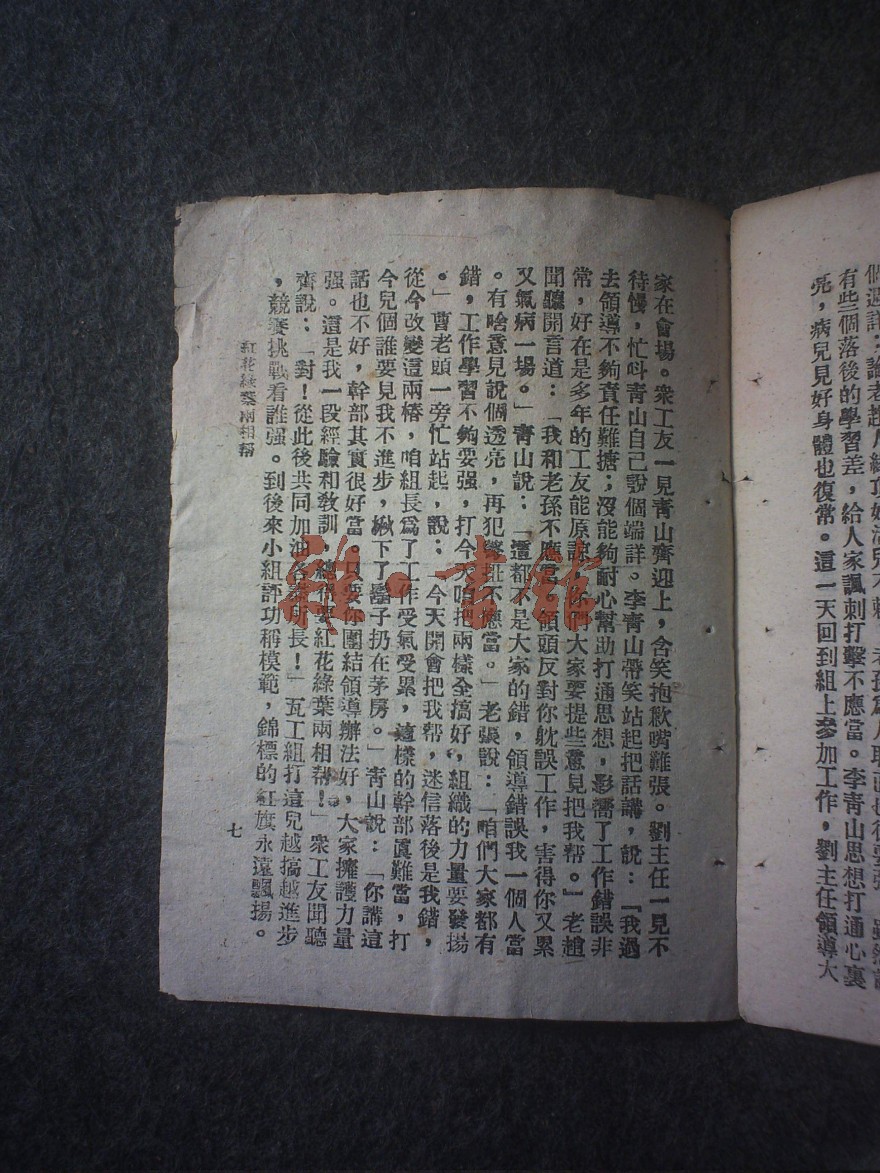 有些個落後的學習差，給人家諷刺打擊不應當。李青山思想打通心裏
亮，病兒見好身體也復常。這一天回到組上參加工作，劉主任領導大
家在會場。衆工友一見青山齊迎上，含笑抱歉嘴難張。劉主任一見不
待慢，忙呌青山自己說個端詳。李青山帶笑站起把話講，說：『我過
去領導不夠責任難搪；沒能夠耐心幫助打通思想，影響了工作錯誤非
常，好在是多年的工友能原諒，你們大家要提些意見把我帮。』老趙
聞聽開言道：「我和老孫不應當，領頭反對你躭誤工作，害得你又累
又氣病一場。」青山說：「這都不是大家的錯，領導錯誤我一個人當
。有啥意見說個透亮，再犯不應當。」老張說：「咱們大家都有
錯，工作學習不夠要强，打今天咱把兩樣全搞好，組織的力量要發揚
。」曹老頭一旁忙站起，說：「今天開會把我帮，迷信落後是我錯，
從今改變這兩樁，咱組長爲了工作受氣受累，這樣的幹部眞難當，打
今兒個誰要見我不進步，楸下了腦子扔在茅房。」青山說：「你講這
話也不好，幹部其實很好當。只要你團結領導辦法好，大家擁護力量
强。這是我一段經驗和敎訓，總得要紅花綠葉兩相帮！」衆工友聞聽
齊說：「對！從此後共同加油各家所長！」瓦工組打這兒越搞越進步
，競賽挑戰看誰强。到後來小組評功稱模範，錦標的紅旗永遠飄揚。
紅花綠葉兩相帮
七
雜·書館